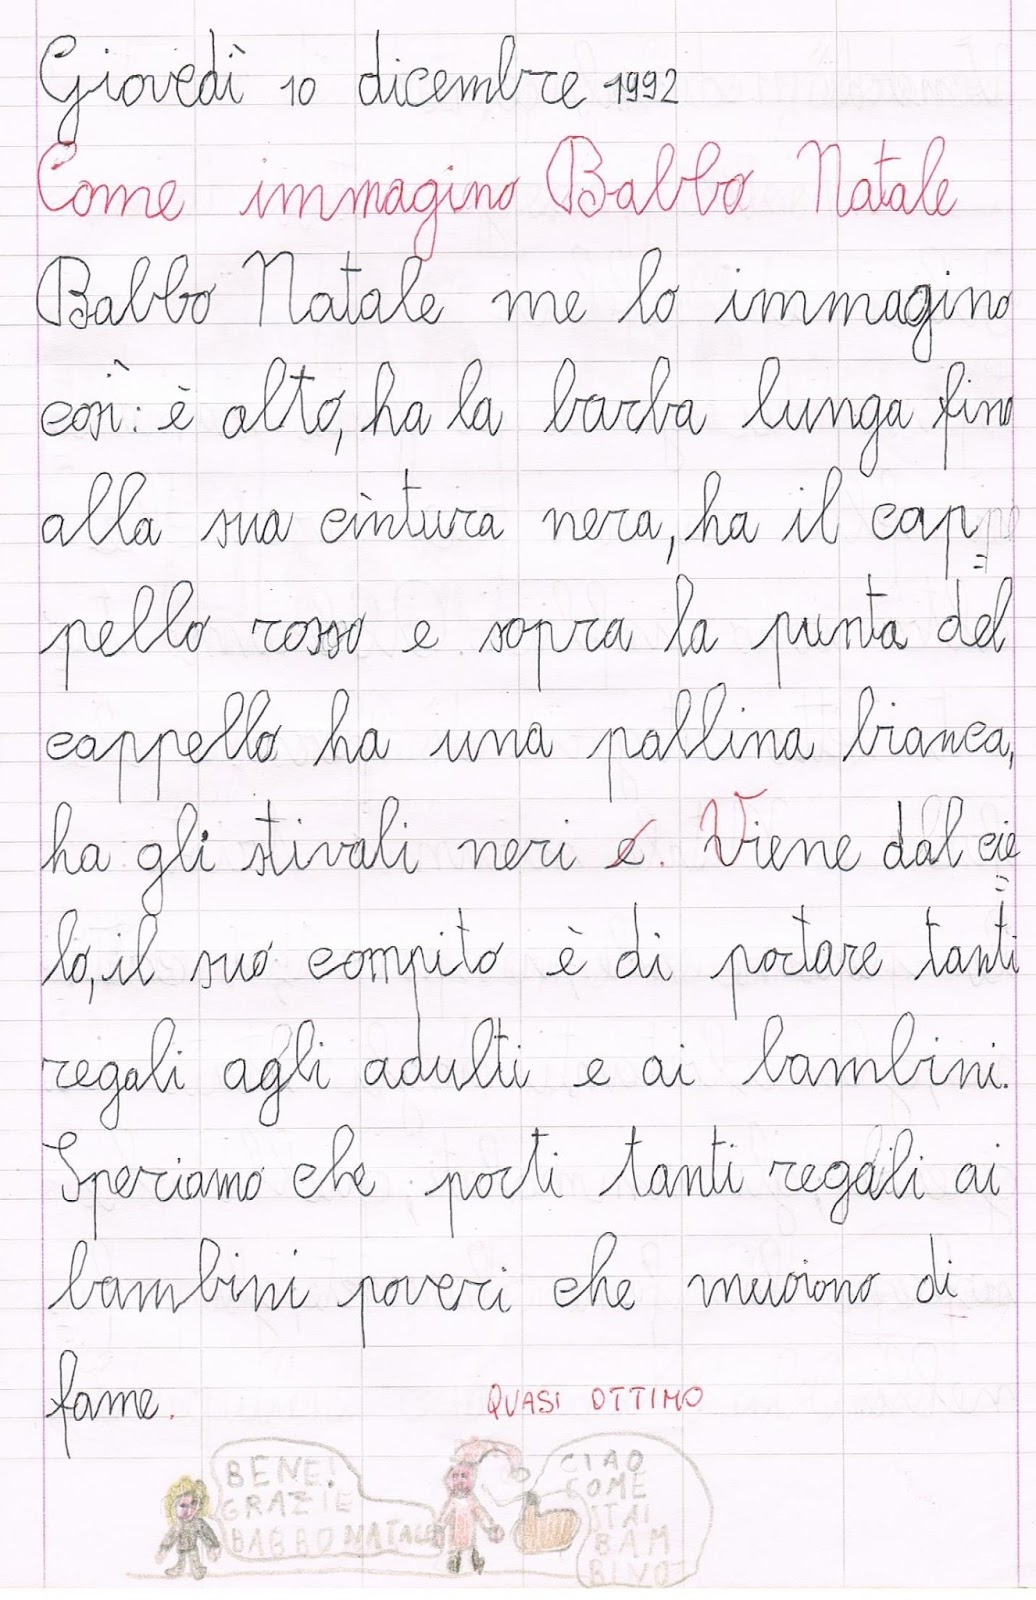 Giovedì 10 dicembre 1992
Come immagino Babbo Natale
Babbo Natale me lo immagino
così: è alto, ha la barba lunga fino
alla sua cintura nera, ha il cap=
pello rosso e sopra la punta del
cappello ha una pallina bianca,
ha gli stivali neri e. Viene dal cie=
lo, il suo compito è di portare tanti
regali agli adulti e ai bambini.
Speriamo che porti tanti regali ai
bambini poveri che muoiono di
fame.
QUASI OTTIMO
BENE!
GRAZIE
BABBO NATALE
CIAO
COME
STAI
BAM
BINO